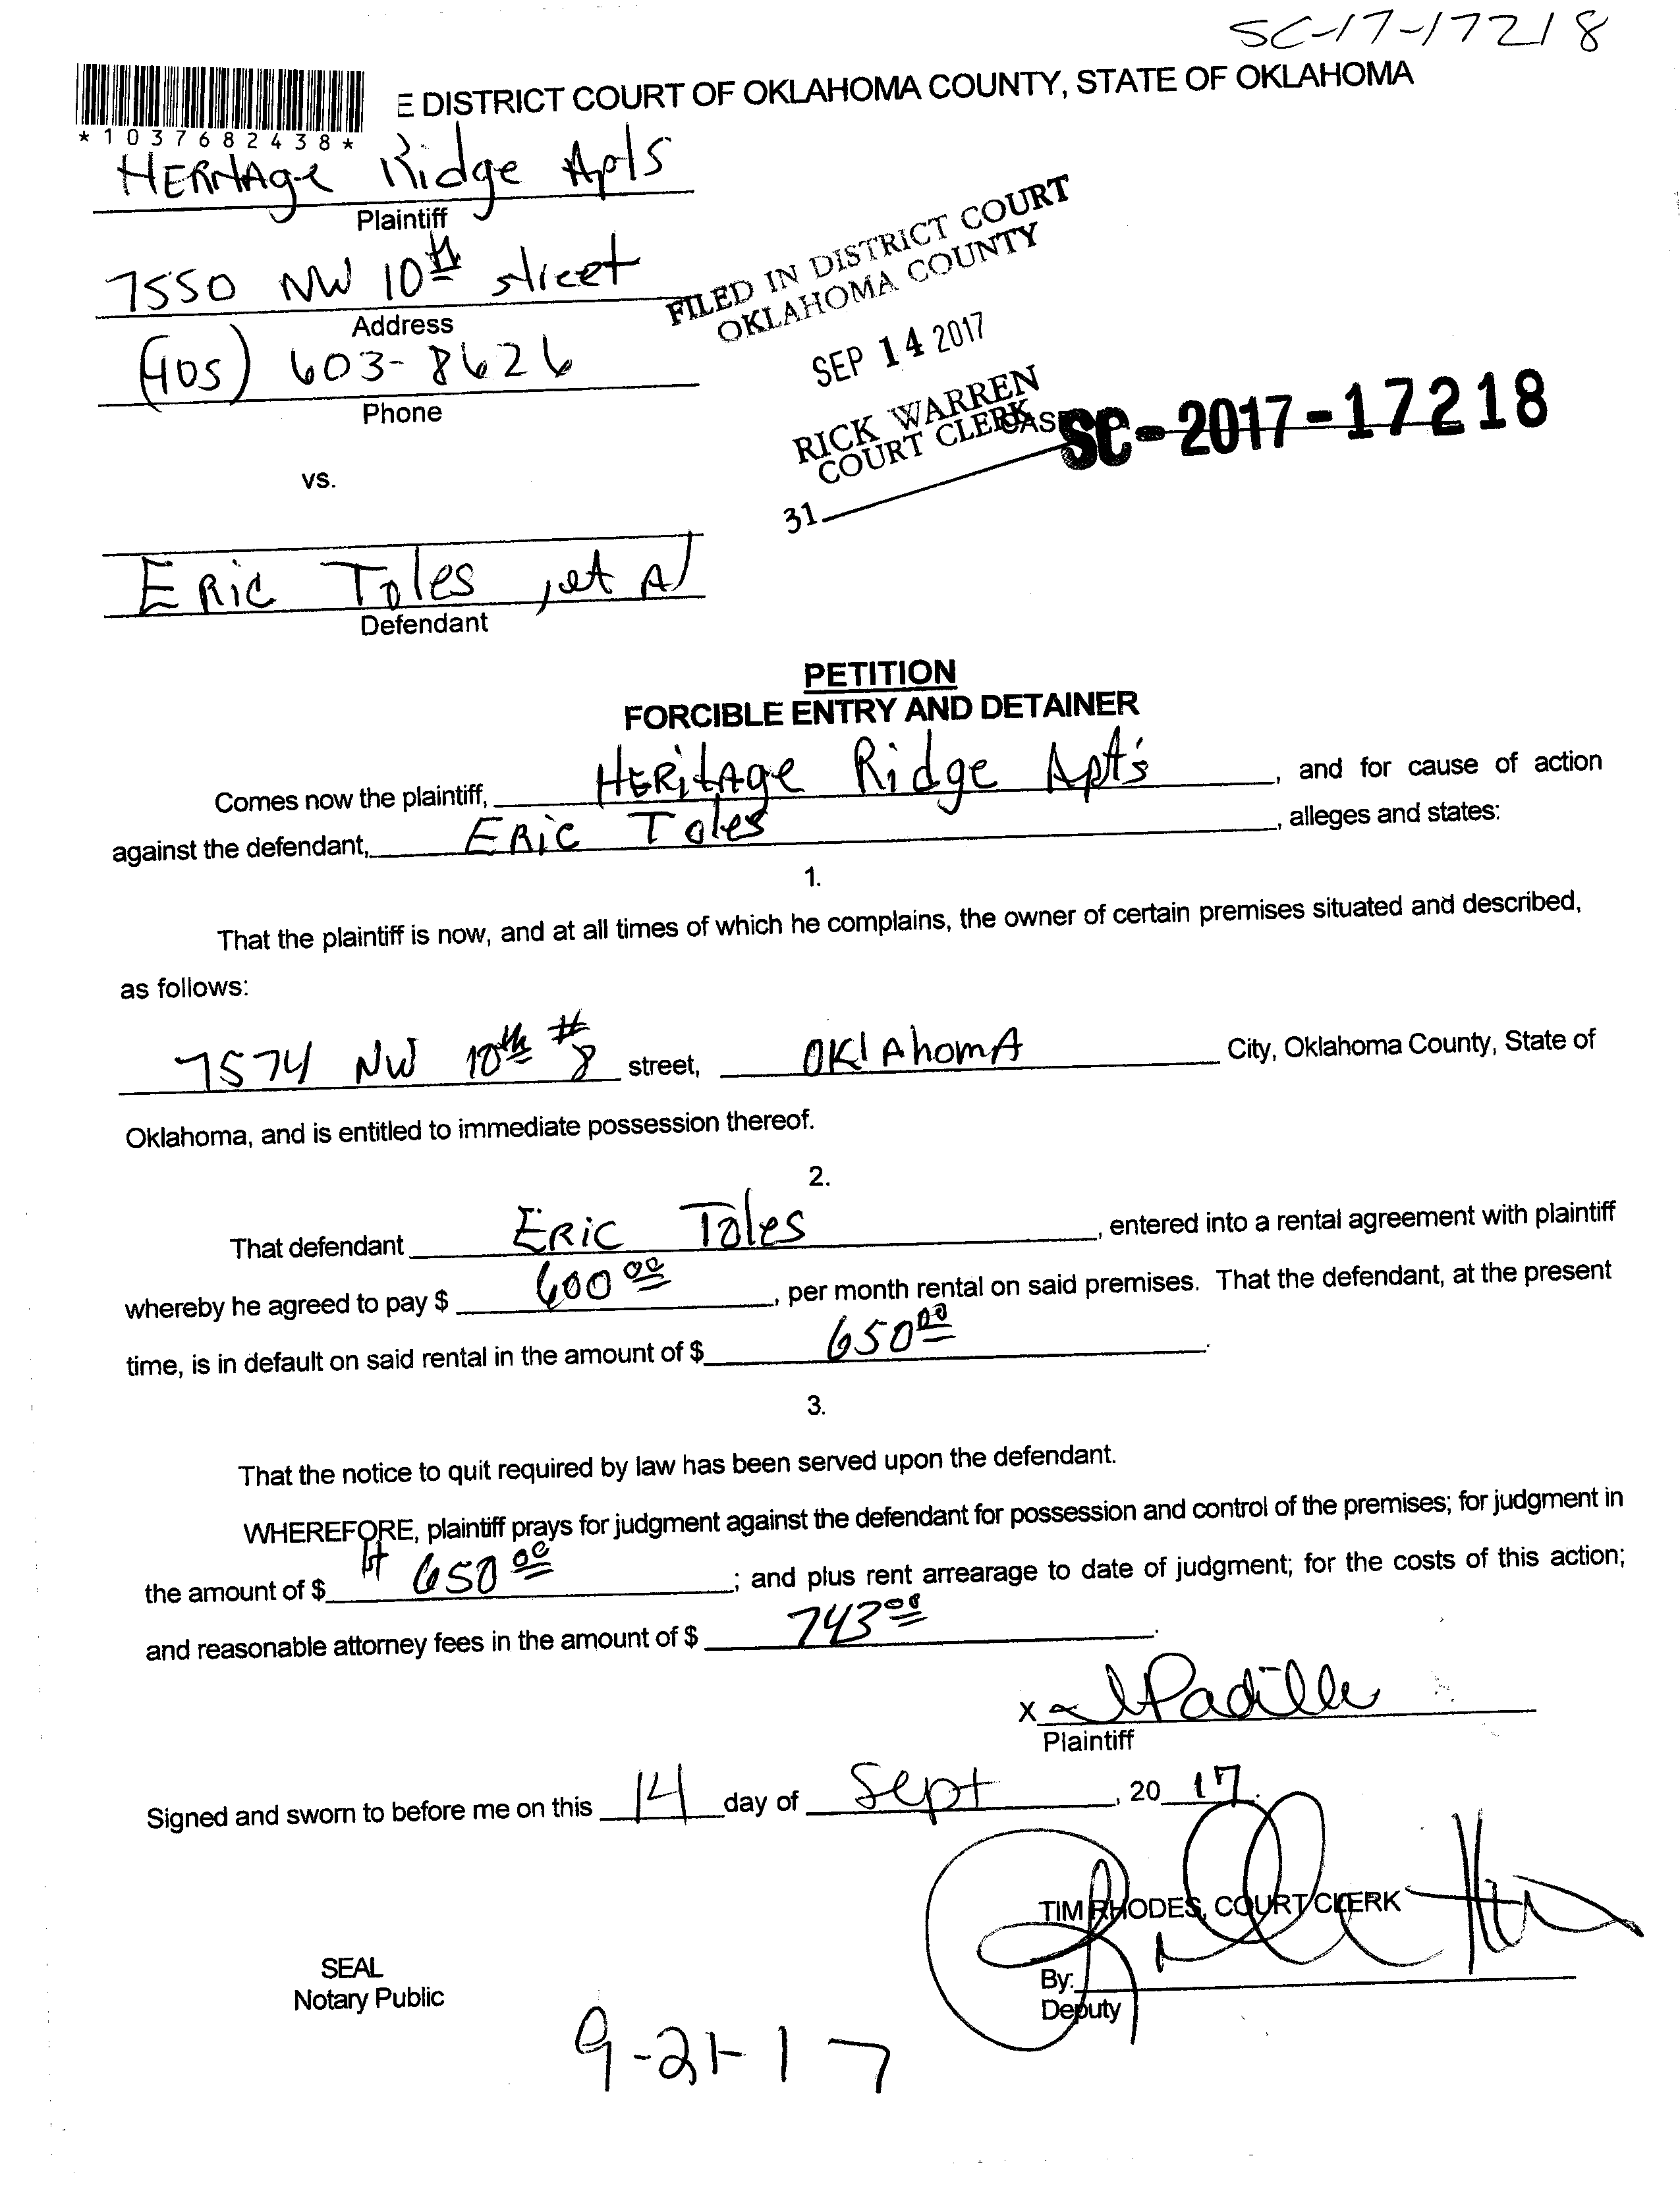 SC-17-17218
E DISTRICT COURT OF OKLAHOMA COUNTY, STATE OF OKLAHOMA
*1037682438*
HERitAge Ridge Apts
Plaintiff
7550 NW 10th street
Address
(405) 603-8626
Phone
FILED IN DISTRICT COURT
OKLAHOMA COUNTY
SEP 14 2017
RICK WARREN
COURT CLERK
31
SC-2017-17218
vs.
ERic Toles, et Al
Defendant
PETITION
FORCIBLE ENTRY AND DETAINER
Comes now the plaintiff, HERitAge Ridge Apt's, and for cause of action
against the defendant, ERic Toles, alleges and states:
1.
That the plaintiff is now, and at all times of which he complains, the owner of certain premises situated and described,
as follows:
7574 NW 10th #8 street, OKlAhomA City, Oklahoma County, State of
Oklahoma, and is entitled to immediate possession thereof.
2.
That defendant ERic Toles, entered into a rental agreement with plaintiff
whereby he agreed to pay $ 600 00, per month rental on said premises. That the defendant, at the present
time, is in default on said rental in the amount of $ 650 00.
3.
That the notice to quit required by law has been served upon the defendant.
WHEREFORE, plaintiff prays for judgment against the defendant for possession and control of the premises; for judgment in
the amount of $ 650 00; and plus rent arrearage to date of judgment; for the costs of this action;
and reasonable attorney fees in the amount of $ 743 00.
x Padilla
Plaintiff
Signed and sworn to before me on this 14 day of Sept, 20 17.
TIM RHODES, COURT CLERK
SEAL
Notary Public
By:
Deputy
9-21-17